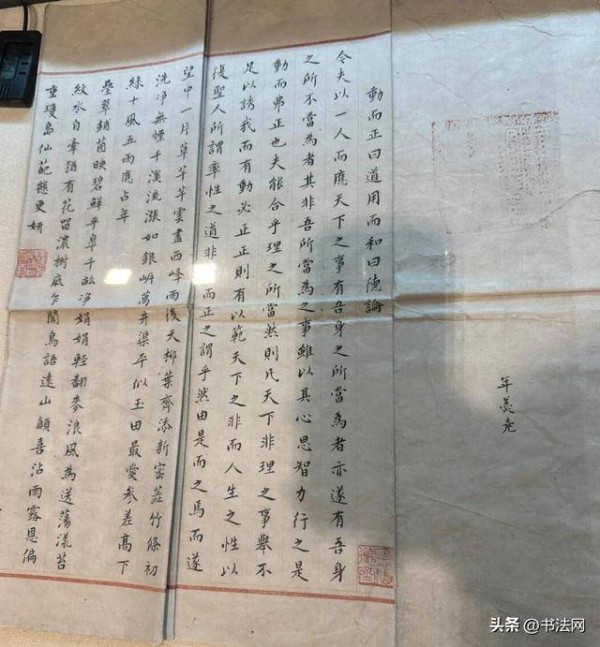 年羹堯
動而正曰道用而和曰德論
今夫以一人而應天下之事有吾身之所當為者亦遂有吾身
之所不當為者其非吾所當為之事雖以其心思智力行之是
動而弗正也夫能合乎理之所當然則凡天下非理之事舉不
足以誘我而有動必正正則有以範天下之非而人生之性以
復聖人所謂率性之道非動而正之謂乎然由是而之焉而遂
望中一片草芊芊雲盡西峰雨後天柳葉齊添新密蓋竹條初
洗淨無煙千溪流漲如銀萬井渠平似玉田最愛參差高下
絲十風五雨應占年
疊翠鋪茵映碧鮮平阜千畝淨娟娟輕翻麥浪風為送蕩漾苔
紋水自牽猶有花留濃樹底乍聞鳥語遠山顛喜沾雨露恩偏
重瓊島仙葩態更妍
头条 @书法网